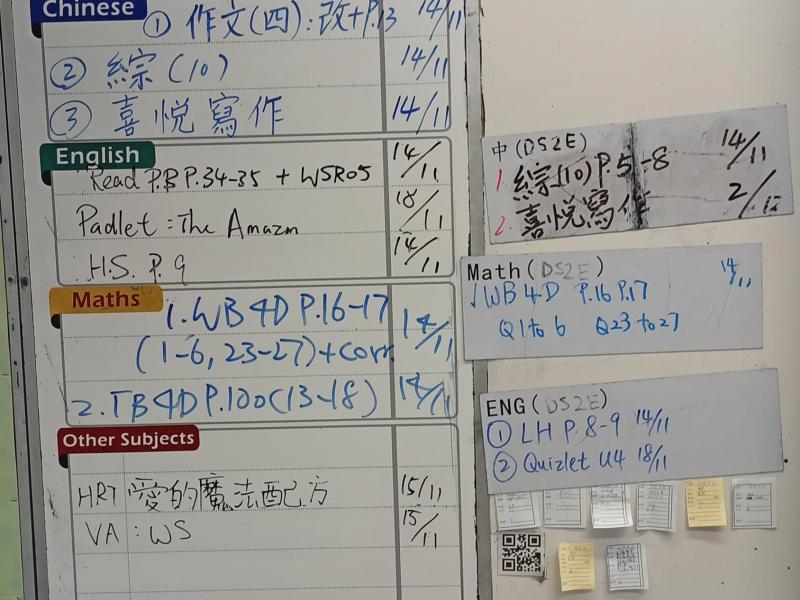 Chinese
① 作文(四):改+P.13 14/11
② 綜(10) 14/11
③ 喜悅寫作 14/11
English
Read P.B P.34-35 + WSR05 14/11
Padlet : The Amazon 18/11
H.S. P. 9 14/11
Maths
1. WB 4D P.16-17
(1-6, 23-27) + Corr. 14/11
2. TB 4D P.100 (13-18) 14/11
Other Subjects
HRT 愛的魔法配方 15/11
VA : WS 15/11
中(DS2E)
1. 綜(10) P.5-8 14/11
2. 喜悅寫作 2/12
Math (DS2E)
WB 4D P.16 P.17 14/11
Q1 to 6 Q23 to 27
ENG (DS2E)
① LH P. 8-9 14/11
② Quizlet U4 18/11